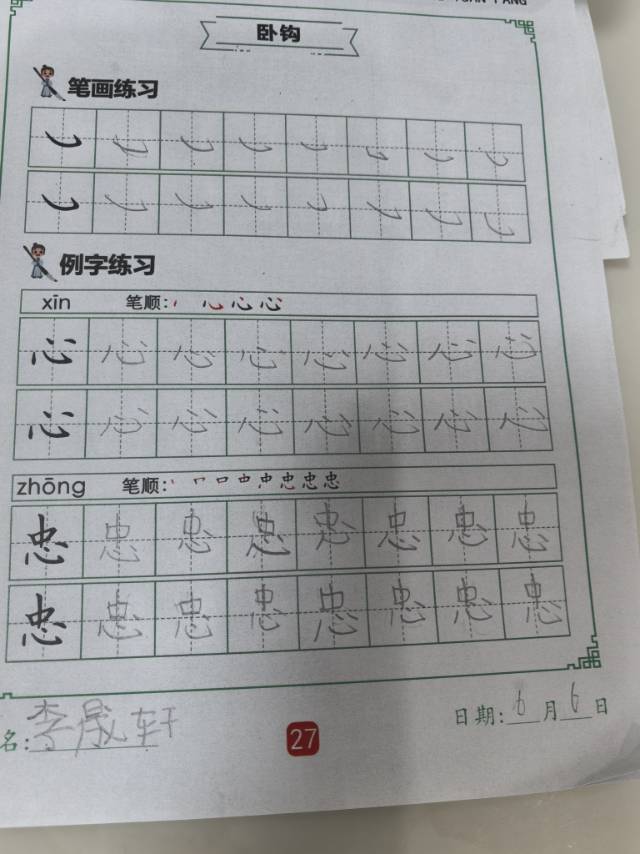 卧钩
笔画练习
例字练习
xīn 笔顺:
心 心 心 心 心 心 心 心
心 心 心 心 心 心 心 心
zhōng 笔顺:
忠 忠 忠 忠 忠 忠 忠 忠
忠 忠 忠 忠 忠 忠 忠 忠
名: 李晟轩
27
日期: 6 月 6 日